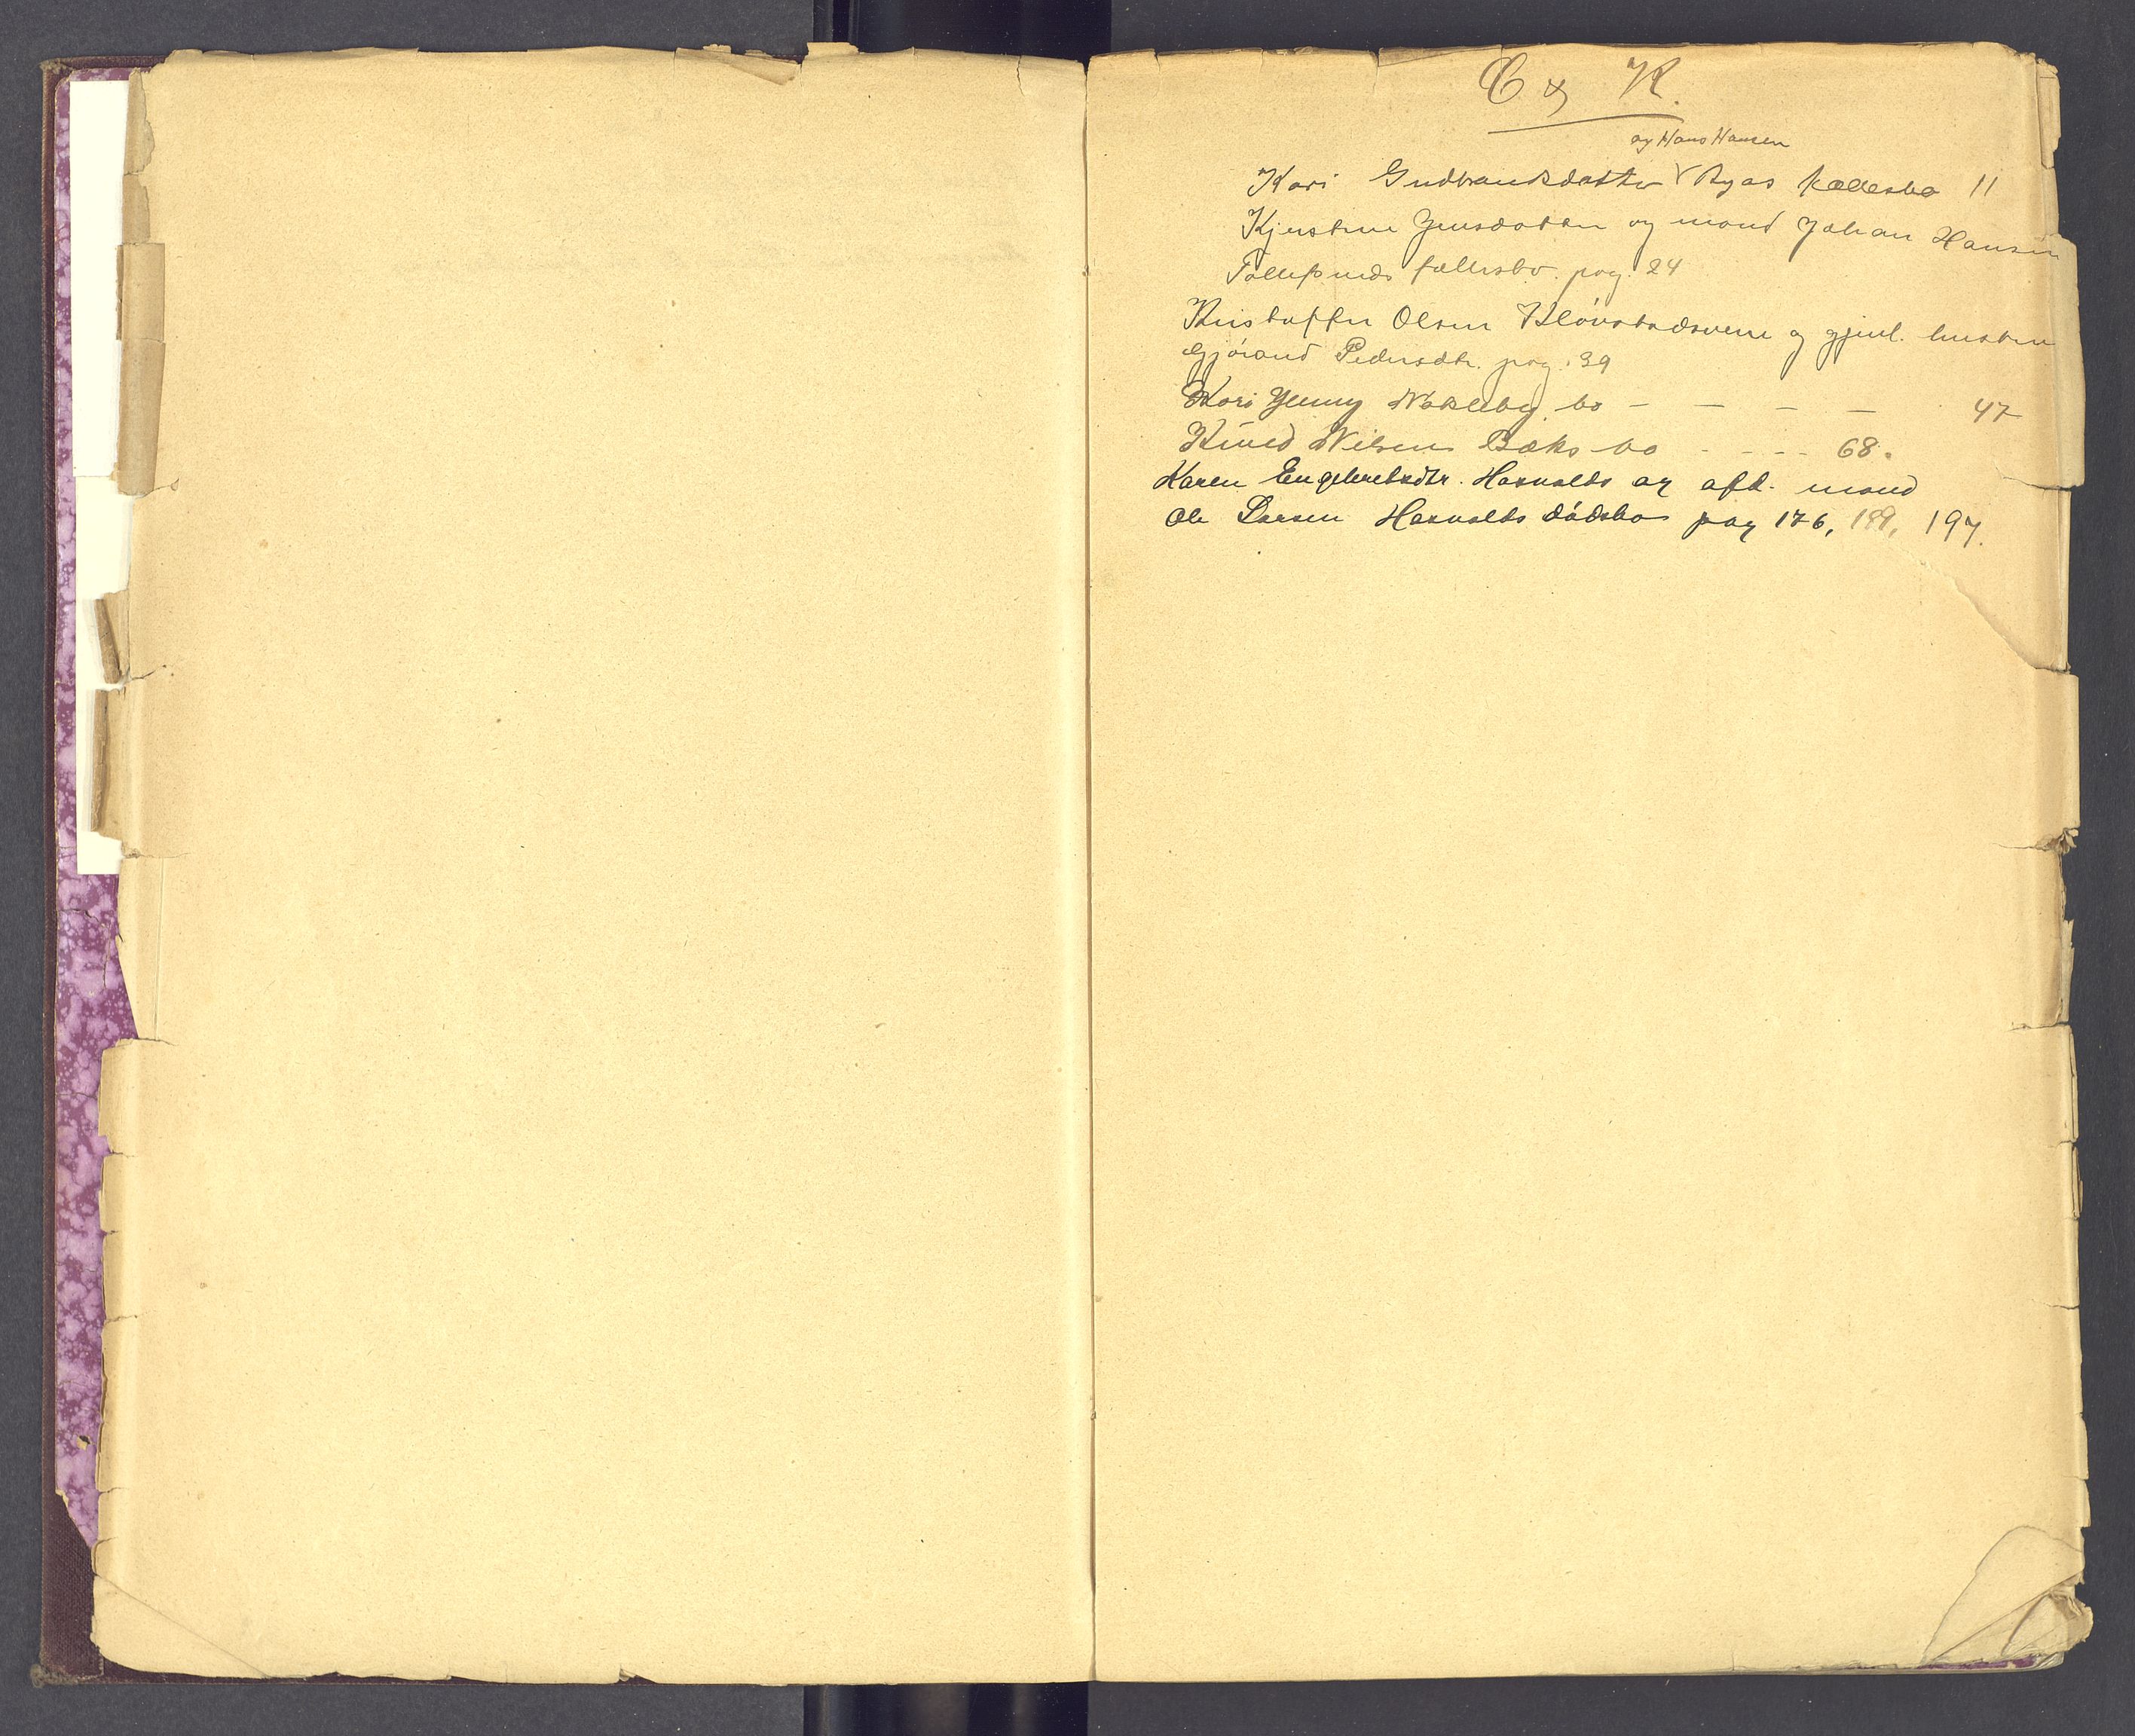 C & K.
og Hans Hansen
Kari Gudbrandsdatter Ryas fællesbo 11
Kjerstine Jensdatter og mand Johan Hansen
Tollefsruds fællesbo. pag. 24
Kristoffer Olsen Kløvstadsveen og gjenl. hustru
Gjørand Pedersdtr. pag. 39
Kari Jenny Nøkleby bo - - - - 47
Knud Nilsens Bæks bo - - - - 68.
Karen Engebretsdtr. Hasvolds og afd. mand
Ole Larsen Hasvolds dødsbo pag 176, 189, 197.